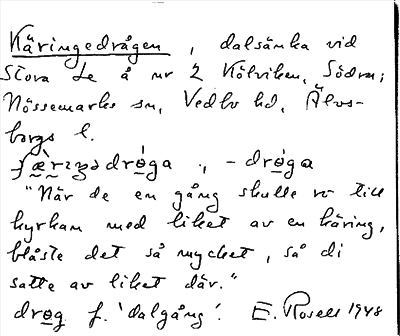 Käringedrågen, dalsänka vid
Stora Le å nr 2 Kölviken, Södra;
Nössemarks sn, Vedbo hd, Älvs-
borgs l.
"När de en gång skulle ro till
kyrkan med liket av en käring,
blåste det så mycket, så di
satte av liket där."
drøg f. 'dalgång'. E. Rosell 1948